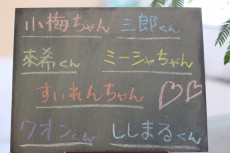 小梅ちゃん 三郎くん
來希くん ミーシャちゃん
すいれんちゃん ♡♡
クオンくん ししまるくん